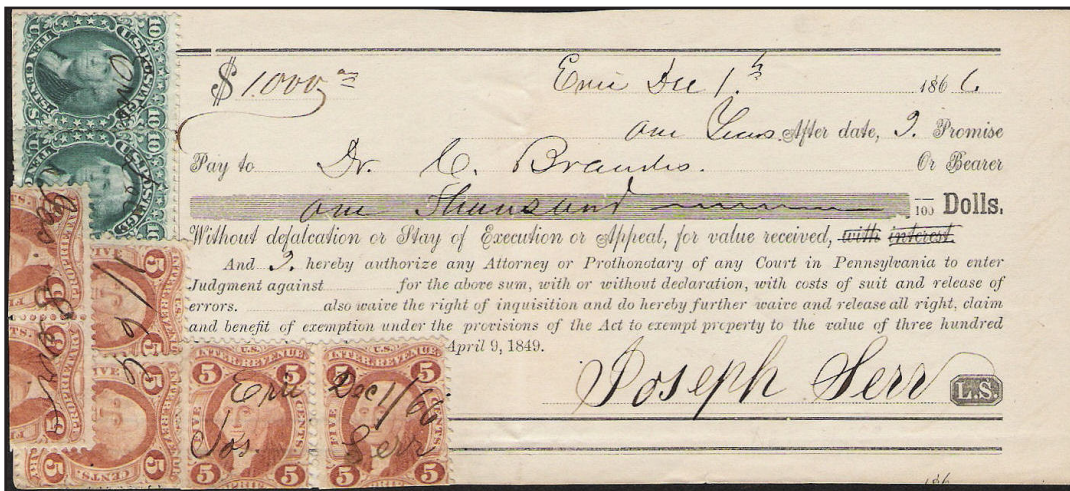 $ 1.000 00 Erie Dec 1. 1866
One Years After date, I Promise
Pay to Dr. C. Brandes. Or Bearer
One Thousand /100 Dolls.
Without defalcation or Stay of Execution or Appeal, for value received, with interest.
And I hereby authorize any Attorney or Prothonotary of any Court in Pennsylvania to enter
Judgment against for the above sum, with or without declaration, with costs of suit and release of
errors. also waive the right of inquisition and do hereby further waive and release all right, claim
and benefit of exemption under the provisions of the Act to exempt property to the value of three hundred
April 9, 1849.
Joseph Serr L.S.
10 U.S. POSTAGE 10
TEN CENTS
10 U.S. POSTAGE 10
5 5
5 5
CENTS.
U.S. U.S.
5 INTER. REVENUE 5 5 INTER. REVENUE 5
Erie Dec 1/66
FIVE CENTS. FIVE CENTS.
Jos. Serr
5 5 5 5
186